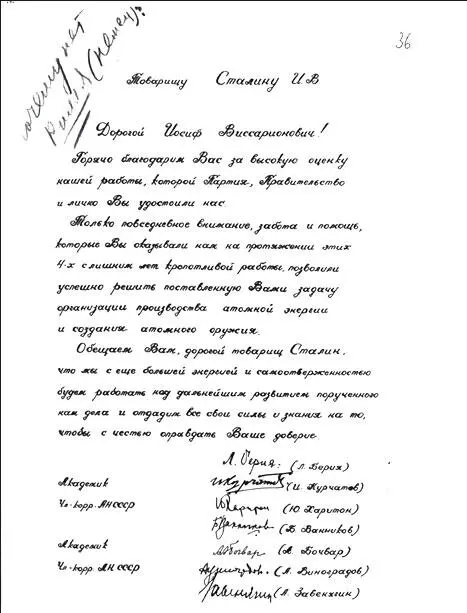 почему нет
Риля (немец)?
36
Товарищу Сталину И В
Дорогой Иосиф Виссарионович!
Горячо благодарим Вас за высокую оценку
нашей работы, которой Партия, Правительство
и лично Вы удостоили нас
Только повседневное внимание, забота и помощь,
которые Вы оказывали нам на протяжении этих
4-х с лишним лет кропотливой работы, позволили
успешно решить поставленную Вами задачу
организации производства атомной энергии
и создания атомного оружия.
Обещаем Вам, дорогой товарищ Сталин,
что мы с еще большей энергией и самоотверженностью
будем работать над дальнейшим развитием порученного
нам дела и отдадим все свои силы и знания на то,
чтобы с честью оправдать Ваше доверие
Л. Берия. (Л. Берия)
Академик ИКурчатов (И. Курчатов)
Чл-корр. АН СССР ЮХаритон (Ю Харитон)
БВанников (Б Ванников)
Академик АБочвар (А. Бочвар)
Чл-корр. АН СССР АВиноградов. (А. Виноградов)
Завенягин (А. Завенягин)